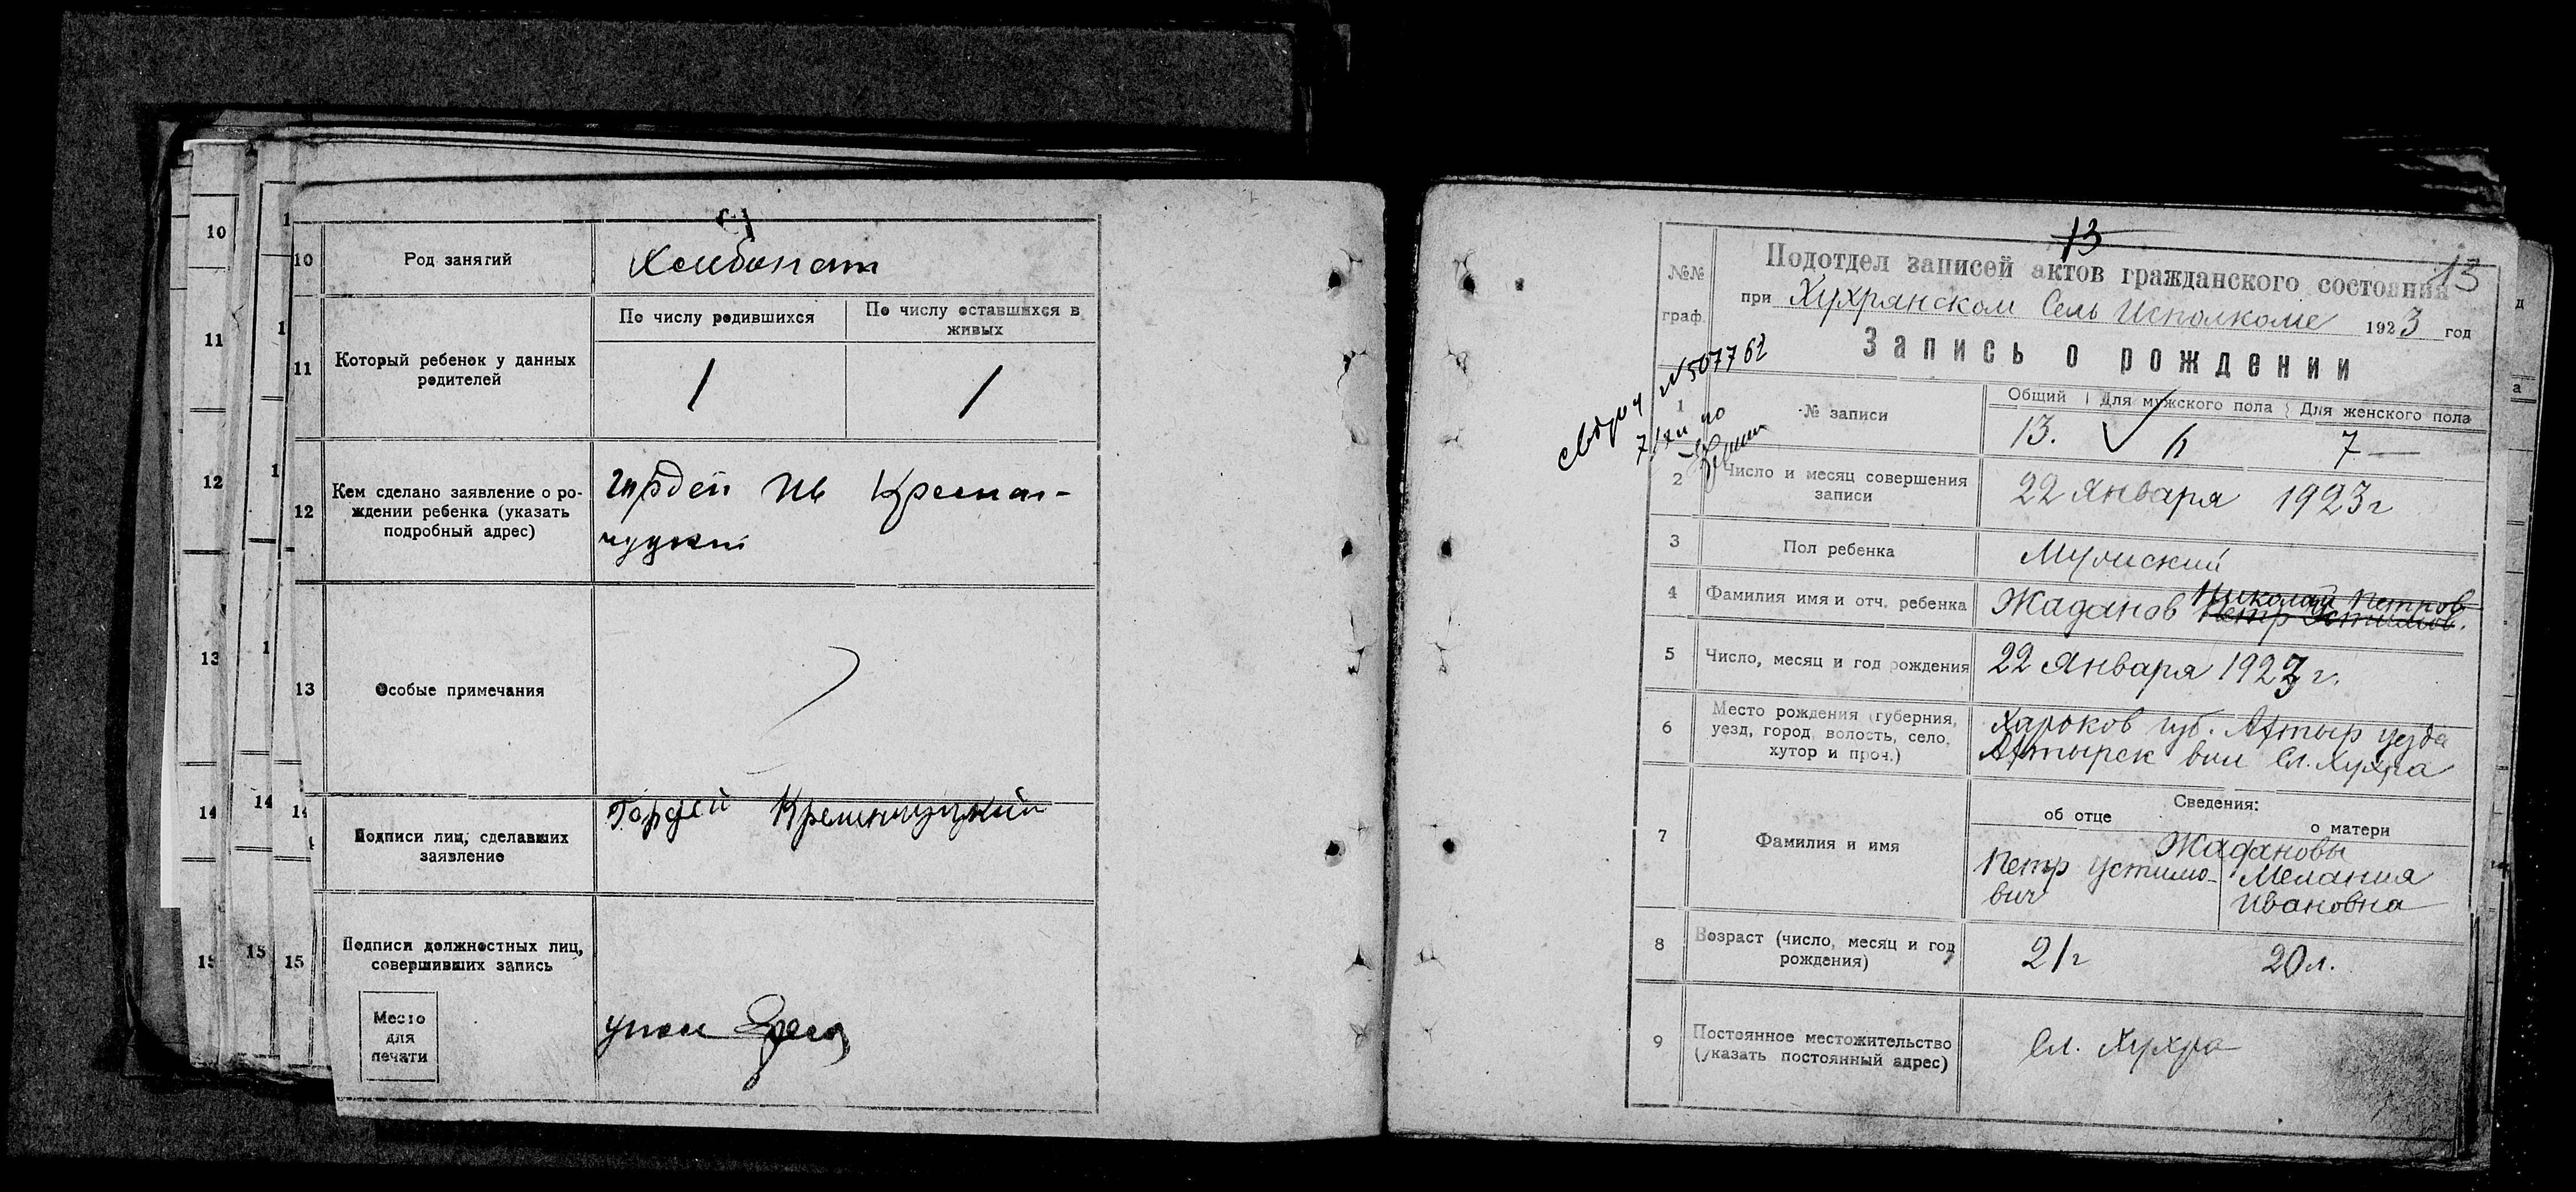 10
11
12
13
14
15
10
Род занятий
Хлебопаш
11
Который ребенок у данных
родителей
По числу родившихся
По числу оставшихся в
живых
1
1
12
Кем сделано заявление о ро-
ждении ребенка (указать
подробный адрес)
Гордей Ив Кремен-
чуцкий
13
Особые примечания
14
Подписи лиц, сделавших
заявление
Гордей Кременчуцкий
15
Подписи должностных лиц,
совершивших запись
Место
для
печати
13
13
№№
граф.
Подотдел записей актов гражданского состояния
при Хухрянском Сель Исполкоме 1923 год
Запись о рождении
№ 507762
1
№ записи
Общий
Для мужского пола
Для женского пола
13.
6
7 —
2
Число и месяц совершения
записи
22 Января 1923 г
3
Пол ребенка
Мужский
4
Фамилия имя и отч. ребенка
Николай Петров
Жаданов Петр Устимов.
5
Число, месяц и год рождения
22 Января 1923 г.
6
Место рождения (губерния,
уезд, город, волость, село,
хутор и проч.)
Харьков губ. Ахтыр уезда
Ахтырск вол Сл. Хухра
7
Фамилия и имя
Сведения:
об отце
о матери
Жадановы
Петр Устимо-
вич
Мелания
Ивановна
8
Возраст (число, месяц и год
рождения)
21 г
20 л.
9
Постоянное местожительство
(указать постоянный адрес)
Сл. Хухра